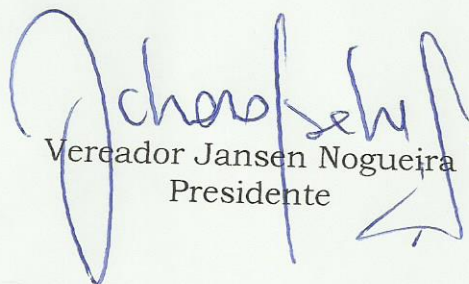 Vereador Jansen Nogueira
Presidente